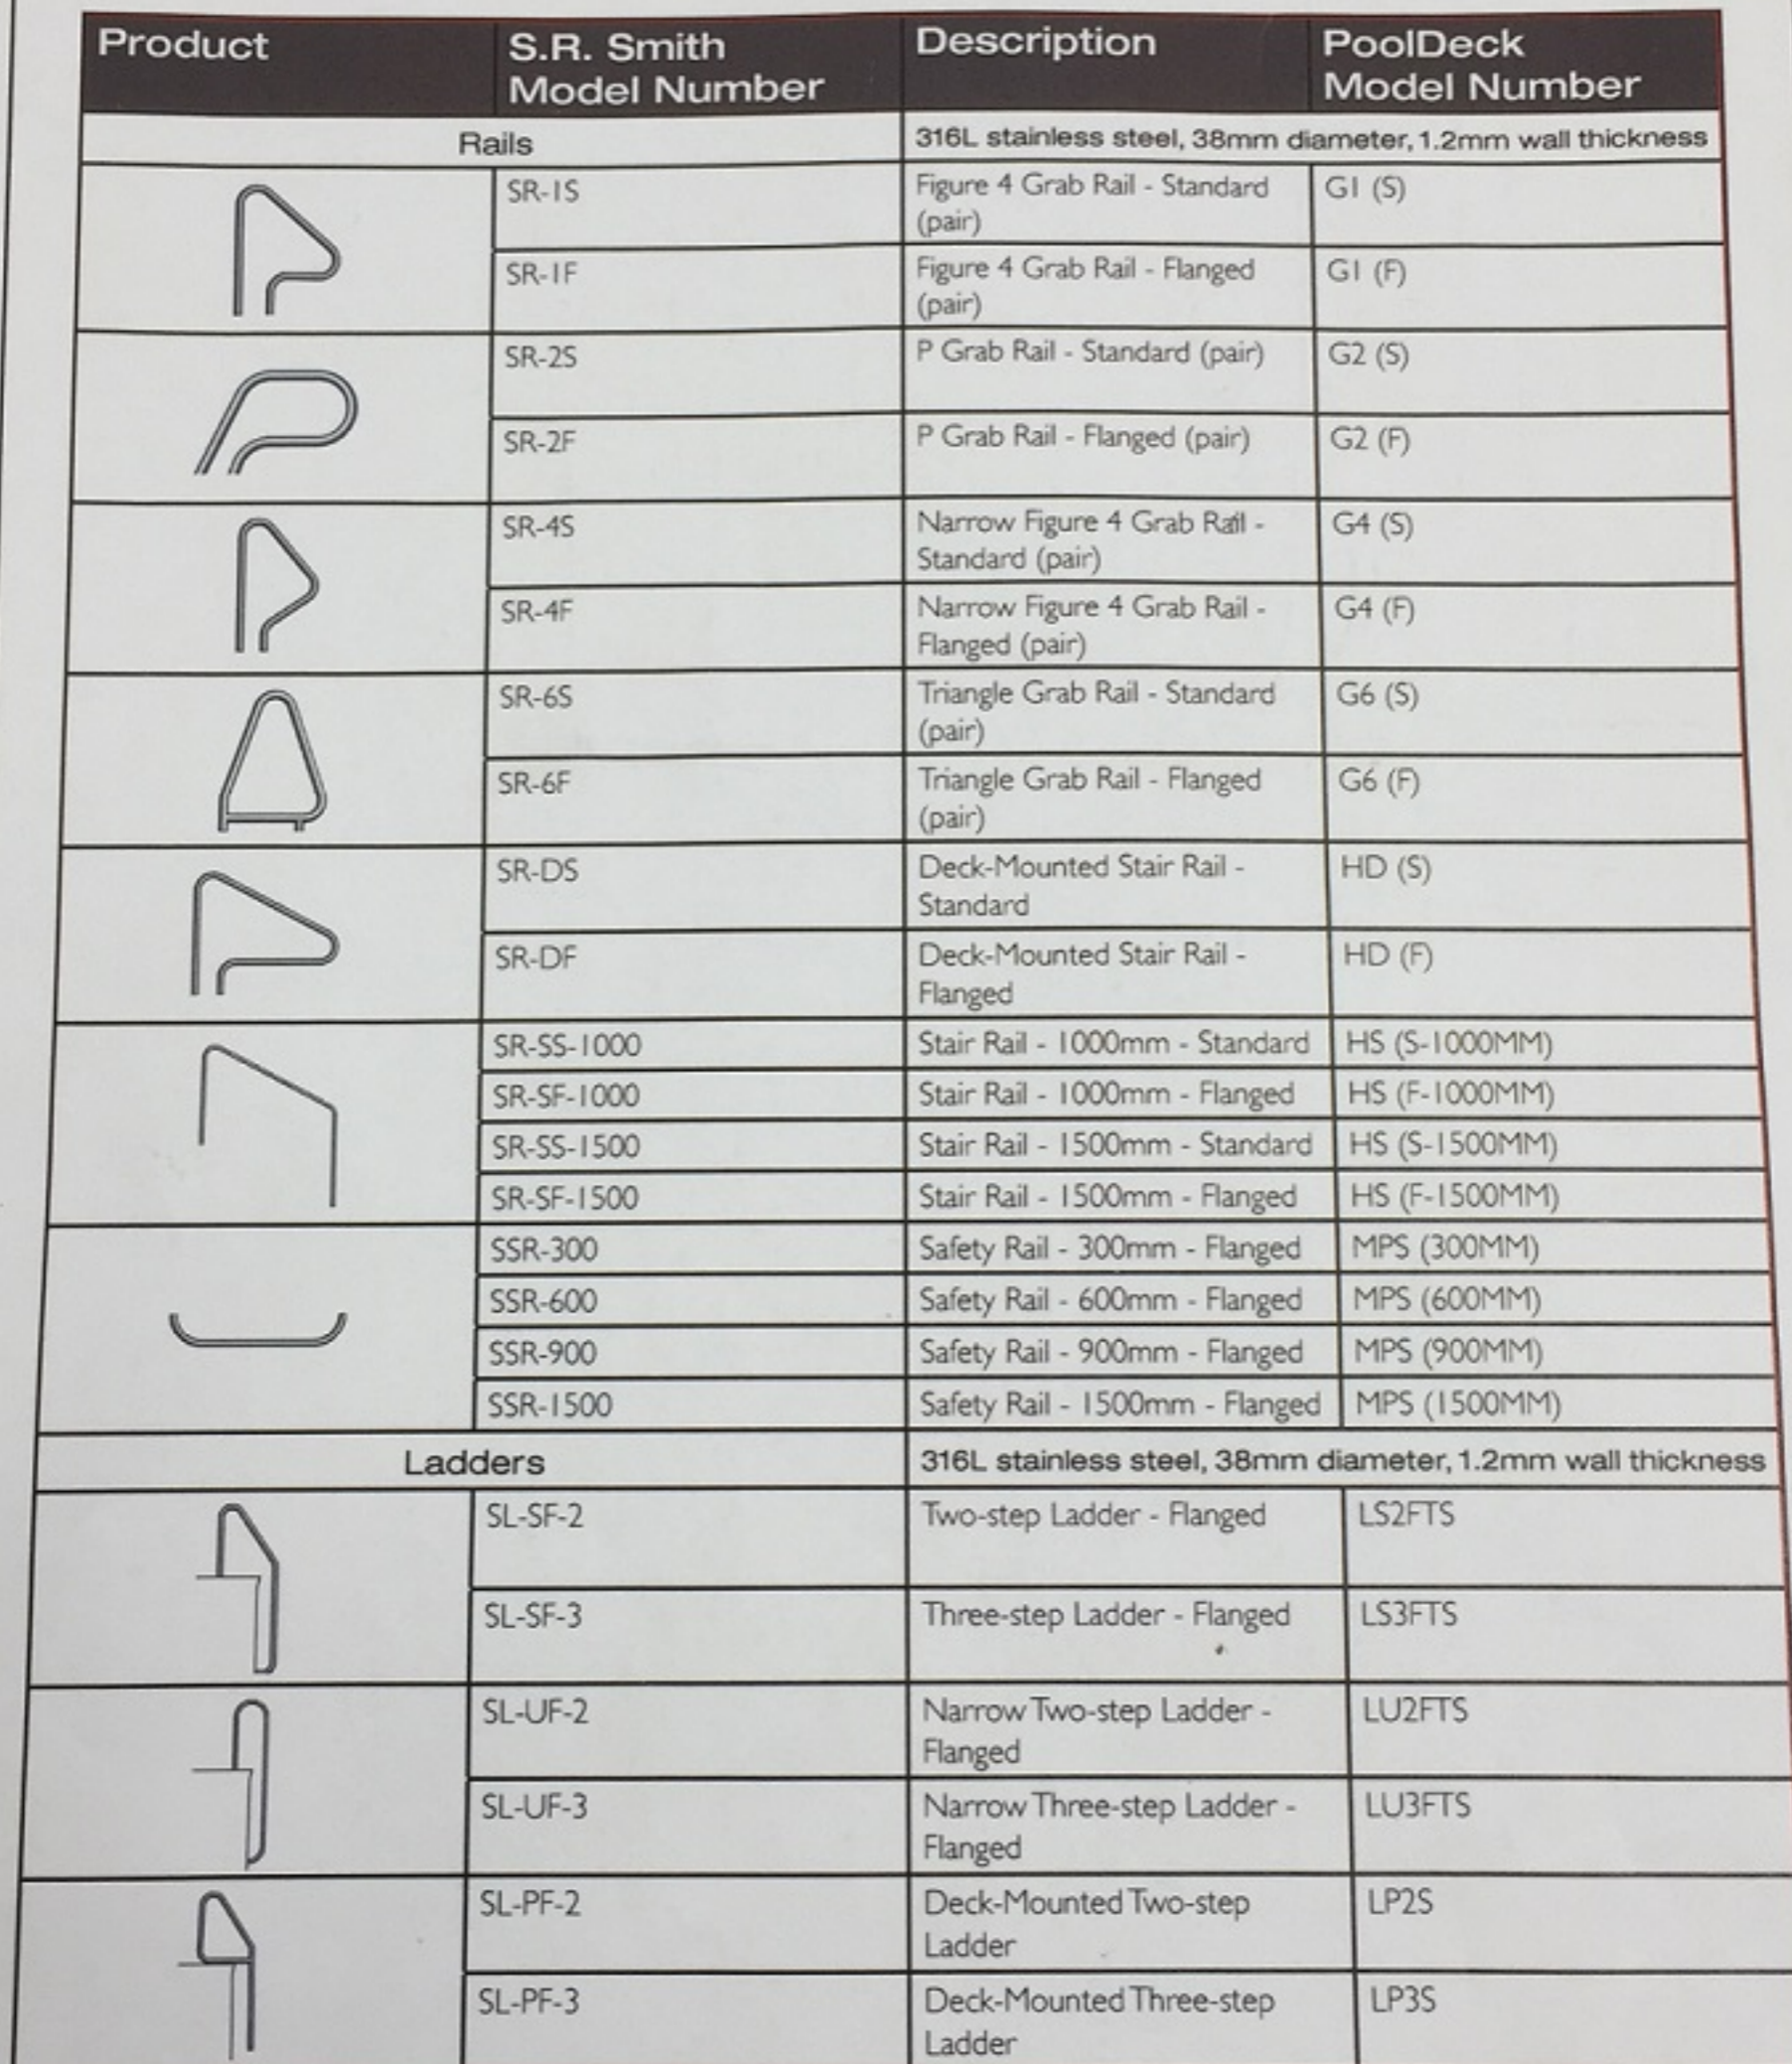 Product
S.R. Smith
Model Number
Description
PoolDeck
Model Number
Rails
316L stainless steel, 38mm diameter, 1.2mm wall thickness
SR-1S
Figure 4 Grab Rail - Standard
(pair)
G1 (S)
SR-1F
Figure 4 Grab Rail - Flanged
(pair)
G1 (F)
SR-2S
P Grab Rail - Standard (pair)
G2 (S)
SR-2F
P Grab Rail - Flanged (pair)
G2 (F)
SR-4S
Narrow Figure 4 Grab Rail -
Standard (pair)
G4 (S)
SR-4F
Narrow Figure 4 Grab Rail -
Flanged (pair)
G4 (F)
SR-6S
Triangle Grab Rail - Standard
(pair)
G6 (S)
SR-6F
Triangle Grab Rail - Flanged
(pair)
G6 (F)
SR-DS
Deck-Mounted Stair Rail -
Standard
HD (S)
SR-DF
Deck-Mounted Stair Rail -
Flanged
HD (F)
SR-SS-1000
Stair Rail - 1000mm - Standard
HS (S-1000MM)
SR-SF-1000
Stair Rail - 1000mm - Flanged
HS (F-1000MM)
SR-SS-1500
Stair Rail - 1500mm - Standard
HS (S-1500MM)
SR-SF-1500
Stair Rail - 1500mm - Flanged
HS (F-1500MM)
SSR-300
Safety Rail - 300mm - Flanged
MPS (300MM)
SSR-600
Safety Rail - 600mm - Flanged
MPS (600MM)
SSR-900
Safety Rail - 900mm - Flanged
MPS (900MM)
SSR-1500
Safety Rail - 1500mm - Flanged
MPS (1500MM)
Ladders
316L stainless steel, 38mm diameter, 1.2mm wall thickness
SL-SF-2
Two-step Ladder - Flanged
LS2FTS
SL-SF-3
Three-step Ladder - Flanged
LS3FTS
SL-UF-2
Narrow Two-step Ladder -
Flanged
LU2FTS
SL-UF-3
Narrow Three-step Ladder -
Flanged
LU3FTS
SL-PF-2
Deck-Mounted Two-step
Ladder
LP2S
SL-PF-3
Deck-Mounted Three-step
Ladder
LP3S